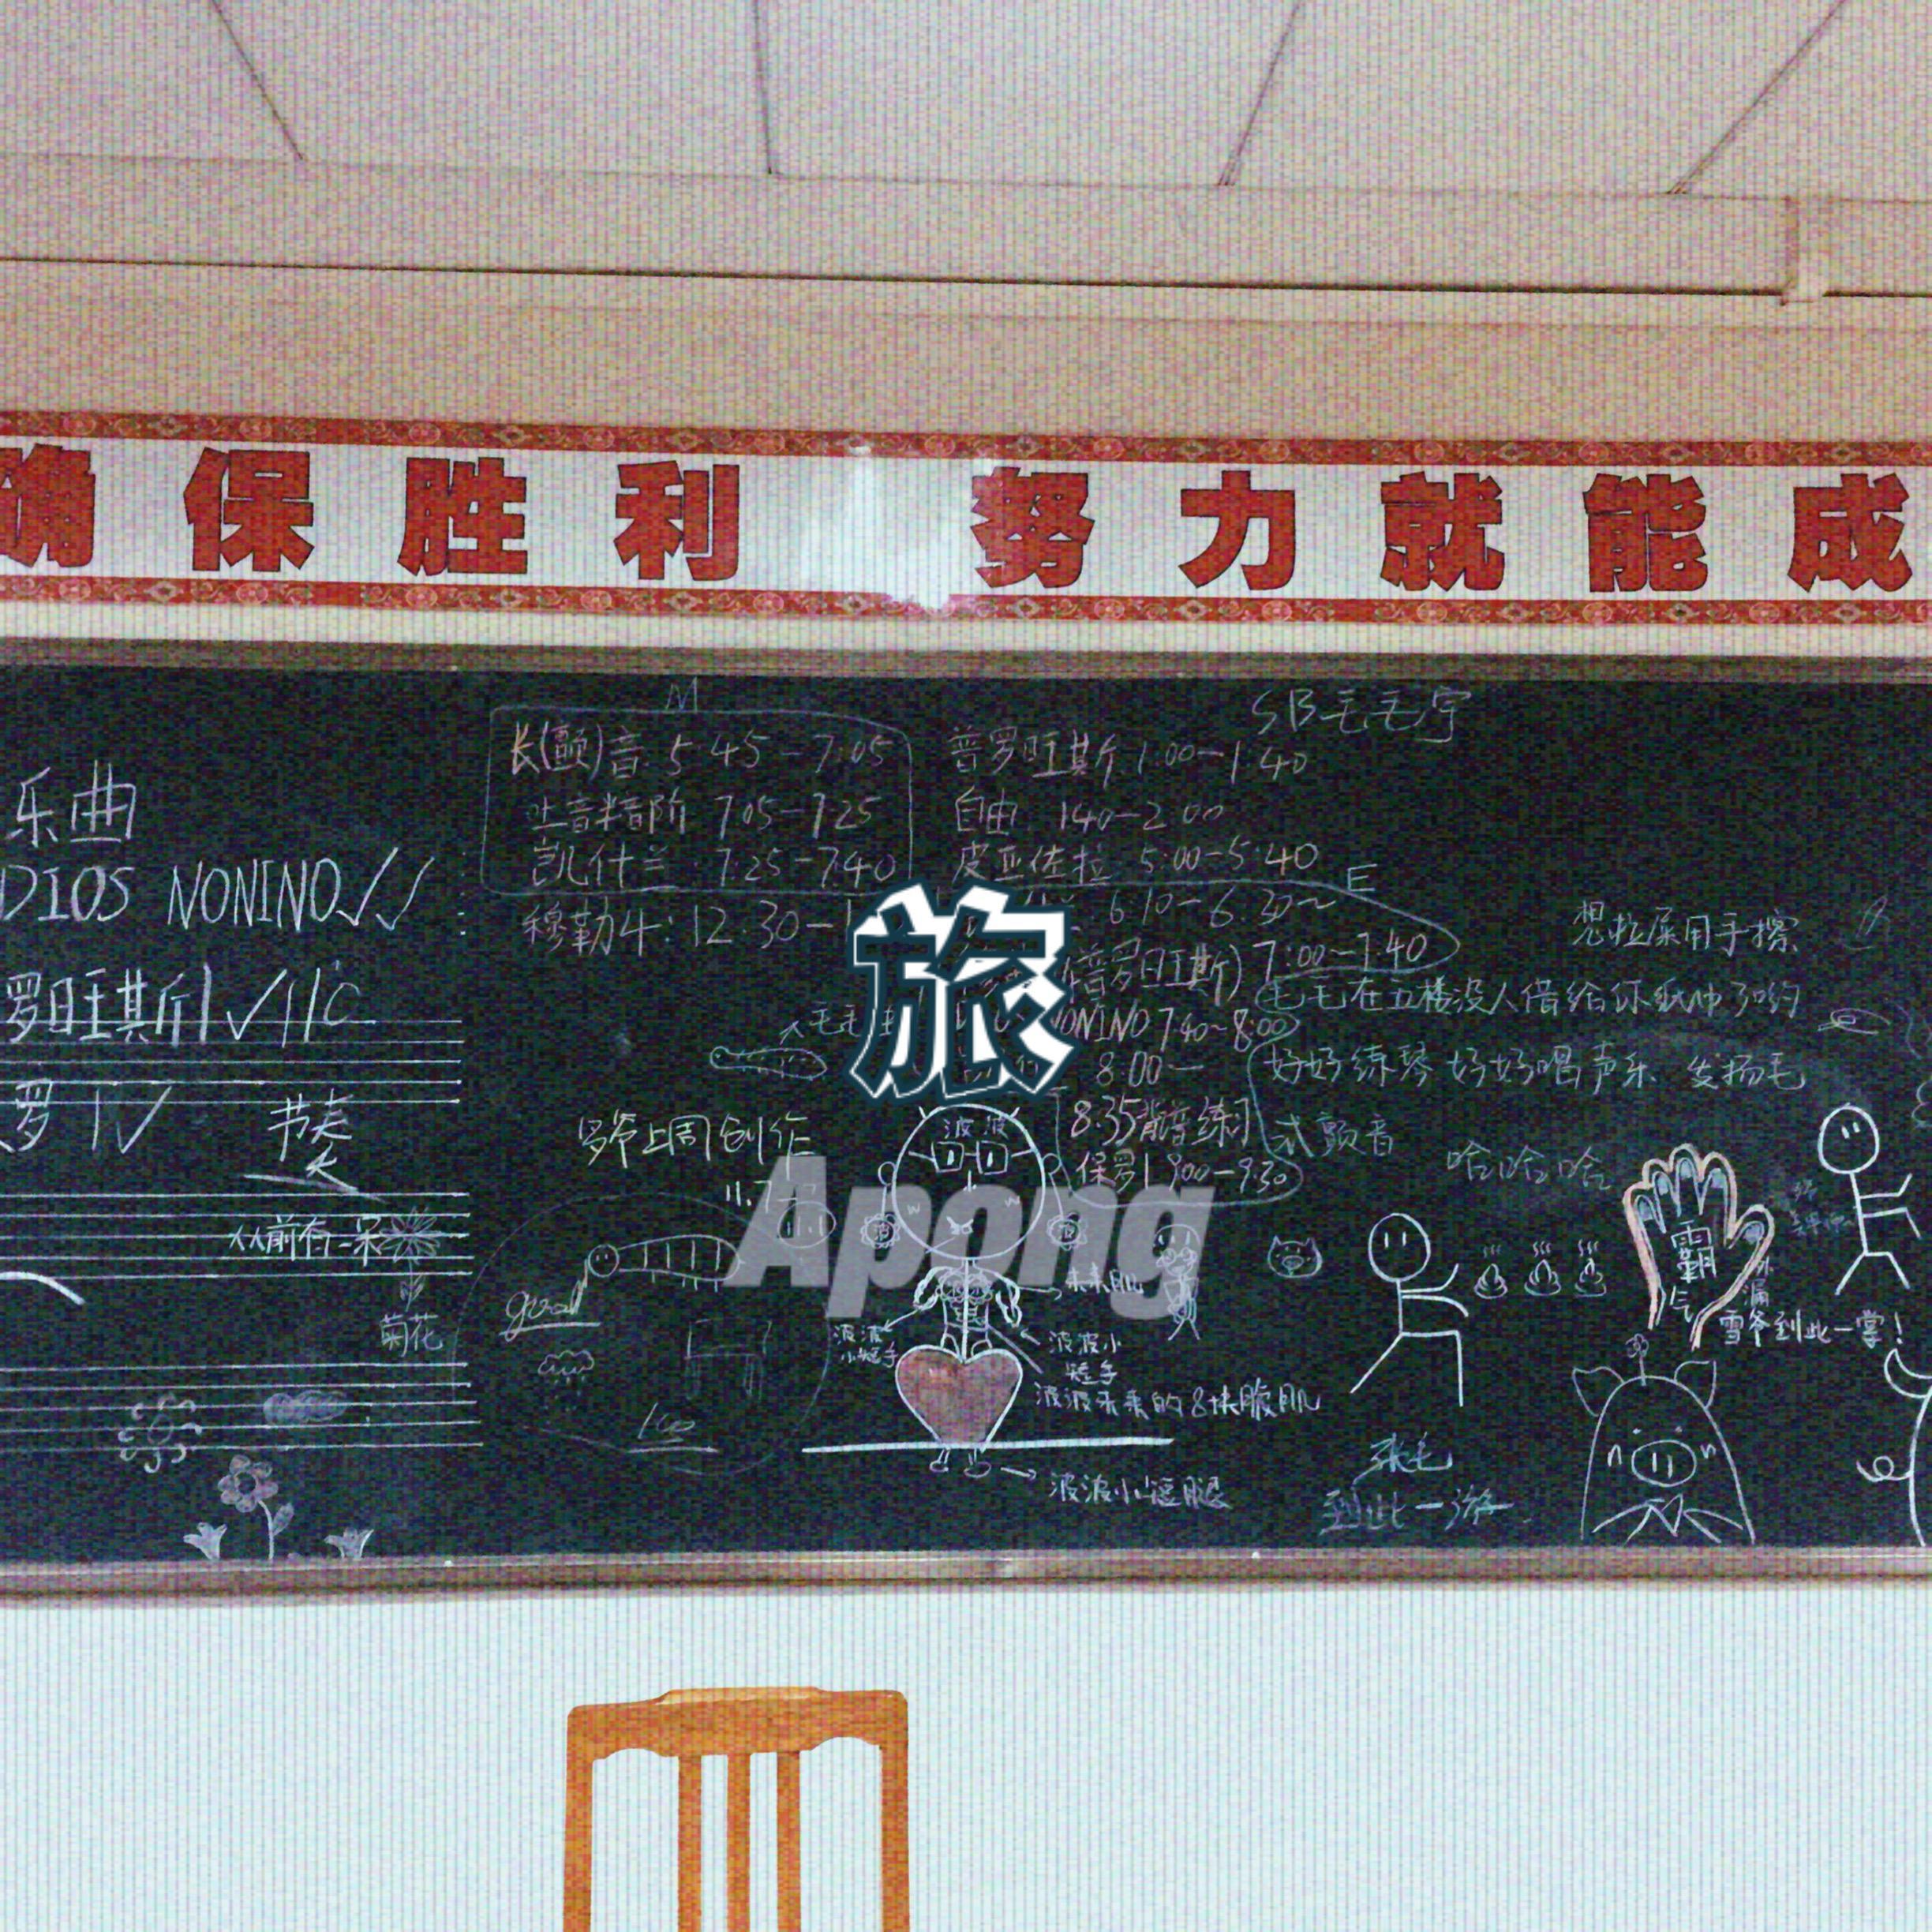 确保胜利 努力就能成
M
SB毛毛宇
长(颤)音 5:45-7:05
普罗旺斯 1:00-1:40
乐曲
半音阶 7:05-7:25
自由 1:40-2:00
DIOS NONINO
凯什兰 7:25-7:40
皮亚佐拉 5:00-5:40
E
穆勒4: 12:30-
6:10-6:30~
想拉屎用手擦
旅
罗旺斯
(普罗旺斯) 7:00-7:40
毛毛在五楼没人借给你纸巾了哟
NONINO 7:40~8:00
8:00-
好好练琴 好好唱声乐 发扬毛
式颤音
罗 IV
节奏
罗爷上周创作
11.7
波波
8:35背谱练习
保罗1 9:00-9:30
哈哈哈
Apong
从前有一朵
菊花
good
霸气
雪爷到此一掌!
波波小短手
波波小短手
波波未来的8块腹肌
波波小短腿
张毛
到此一游